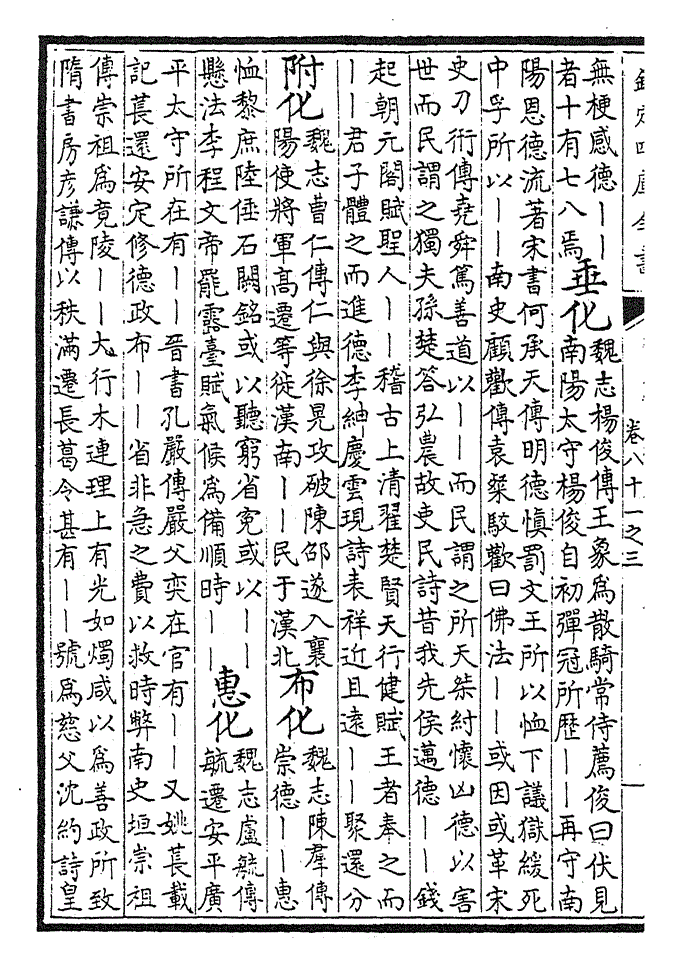 欽定四庫全書
卷八十一之三
一
無梗感德——
者十有七八焉
垂化
魏志楊俊傳王象為散騎常侍薦俊曰伏見
南陽太守楊俊自初彈冠所歷——再守南
陽恩德流著宋書何承天傳明德慎罰文王所以恤下議獄緩死
中孚所以——南史顧歡傳袁粲駁歡曰佛法——或因或革宋
史刀術傳堯舜篤善道以——而民謂之所天桀紂懷凶德以害
世而民謂之獨夫孫楚答弘農故吏民詩昔我先侯邁德——錢
起朝元閣賦聖人——稽古上清翟楚賢天行健賦王者奉之而
——君子體之而進德李紳慶雲現詩表祥近且遠——聚還分
附化
魏志曹仁傳仁與徐晃攻破陳邵遂入襄
陽使將軍高遷等徙漢南——民于漢北
布化
魏志陳羣傳
崇德——惠
恤黎庶陸倕石闕銘或以聽窮省冤或以——
懸法李程文帝罷露臺賦氣候為備順時——
惠化
魏志盧毓傳
毓遷安平廣
平太守所在有——晉書孔嚴傳嚴父奕在官有——又姚萇載
記萇還安定修德政布——省非急之費以救時弊南史垣崇祖
傳崇祖為竟陵——大行木連理上有光如燭咸以為善政所致
隋書房彥謙傳以秩滿遷長葛令甚有——號為慈父沈約詩皇